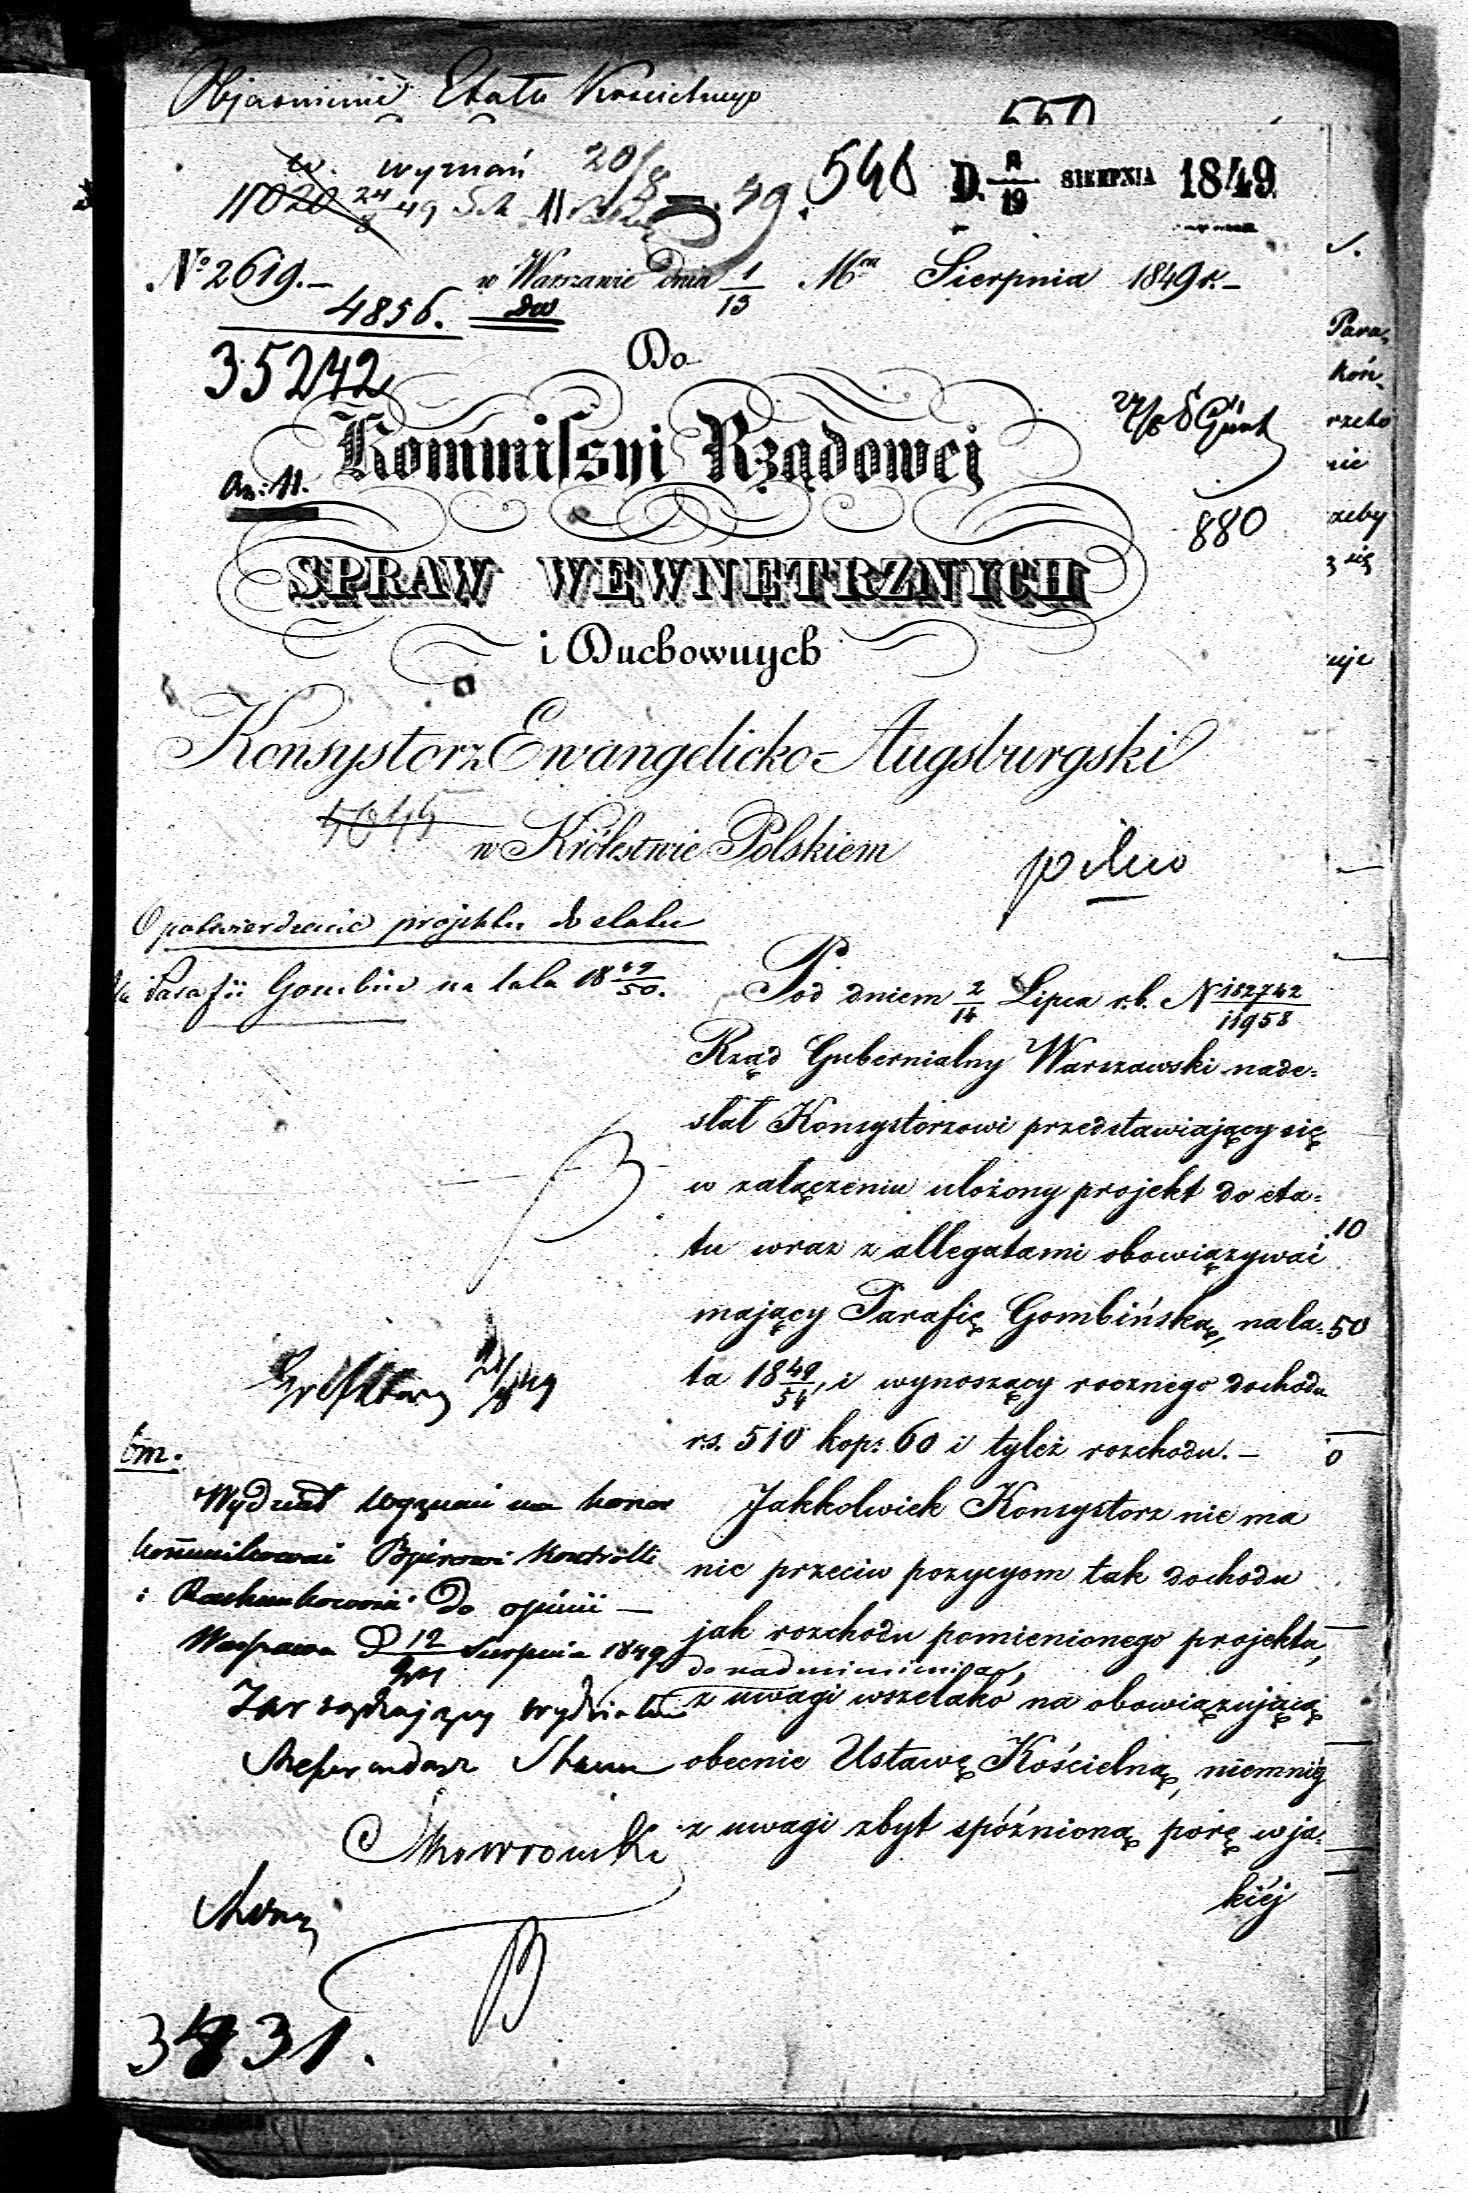 Objaśnienie Etatu Kościelnego
550
w. wyznań 20/8
11020 24/8 49 49. 548 D. 7/19 SIERPNIA 1849
No 2619.— w Warszawie Dnia 1/13 Mca Sierpnia 1849 r.—
4856.
35242
Do
Kommissyi Rządowej
880
SPRAW WEWNĘTRZNYCH
i Duchownych
Konsystorz Ewangelicko-Augsburgski
5045
w Królestwie Polskiem
pilno
O potwierdzenie projektu do etatu
dla Parafii Gombin na lata 18 49/50.
Pod dniem 2/14 Lipca r.b. N 182742/11958
Rząd Gubernialny Warszawski nade=
słał Konsystorzowi przedstawiający się
w załączeniu ułożony projekt do eta=
tu wraz z allegatami obowiązywać
mający Parafię Gombińską, na la=
ta 18 49/54, i wynoszący rocznego dochodu
r.s. 510 kop: 60 i tyleż rozchodu.—
Jakkolwiek Konsystorz nie ma
nic przeciw pozycyom tak dochodu
jak rozchodu pomienionego projektu,
do nadmienienia,
z uwagi wszelako na obowiązującą
obecnie Ustawę Kościelną, niemniéj
z uwagi zbyt spóźnioną porę w ja=
kiéj
Wydział Wyznań ma honor
kommunikować Biórowi Kontrolli
i Rachunkowości do opinii —
Warszawa D 12 Sierpnia 1849
Zarządzający wydziałem
Referendarz Stanu
Skowroński
3431.